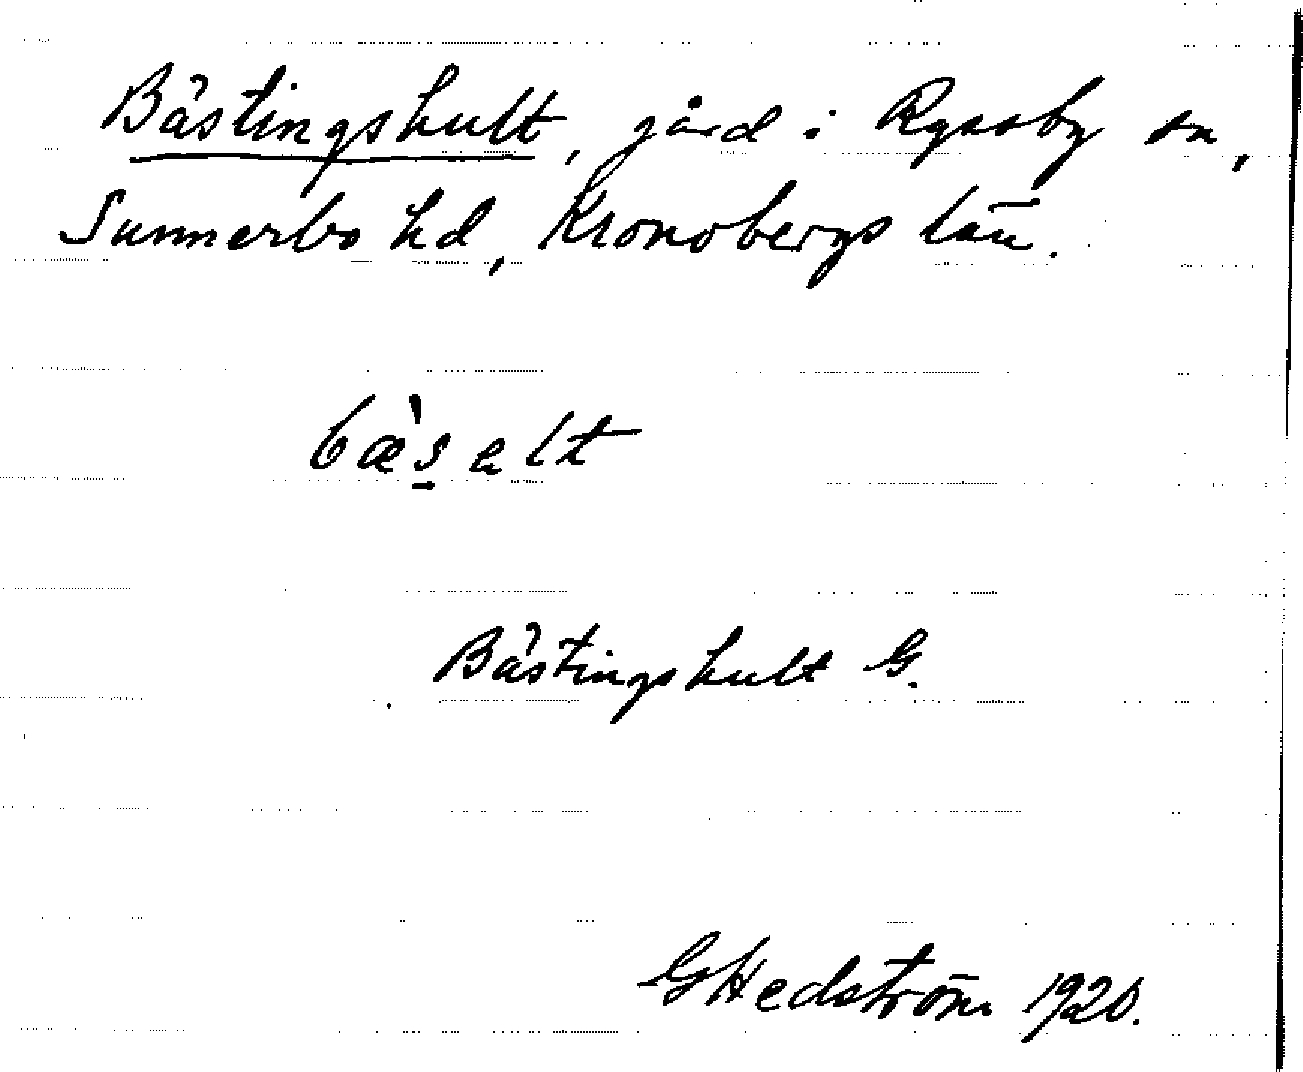 Bästingshult, gård i Ryssby sn,
Sunnerbo hd, Kronobergs län.
bæ̀s̲elt
Bästingshult G.
GHedström 1920.